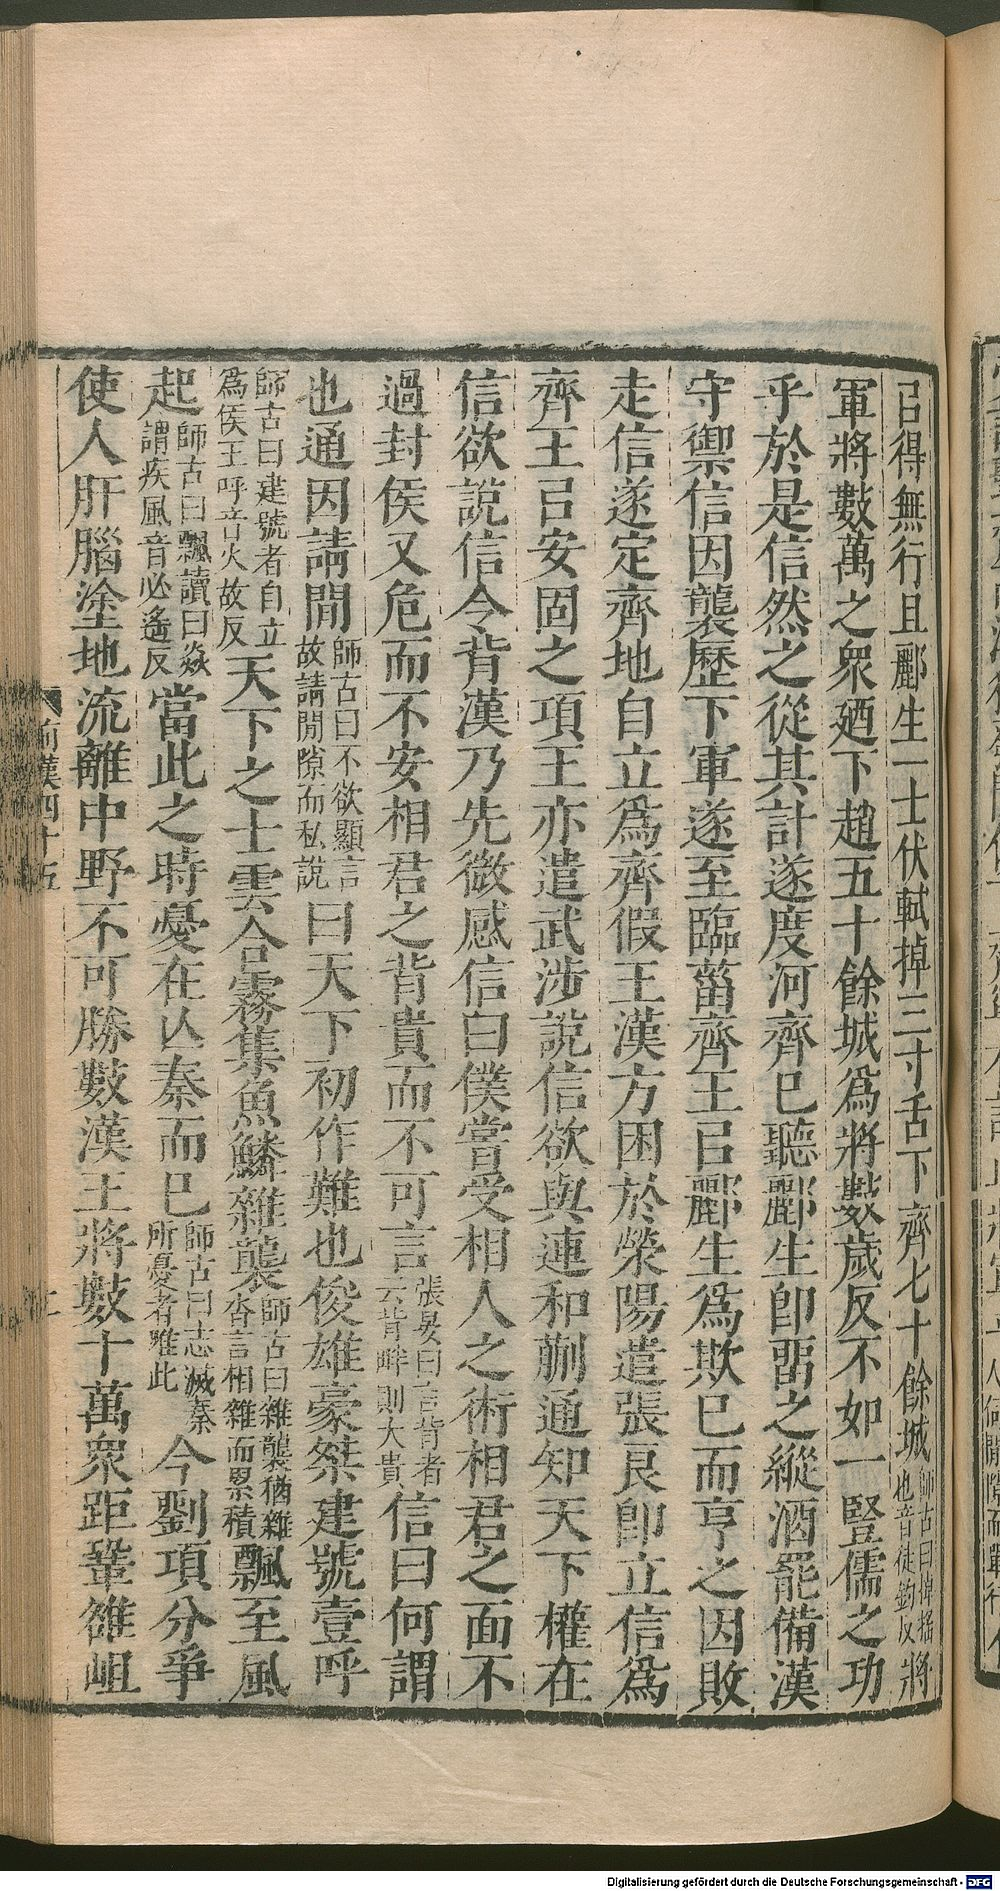 㠯得無行且酈生一士伏軾掉三寸舌下齊七十餘城師古曰掉揺也音徒釣反將
軍將數萬之衆廼下趙五十餘城爲將數歲反不如一豎儒之功
乎於是信然之從其計遂度河齊已聽酈生卽留之縱酒罷備漢
守禦信因襲歷下軍遂至臨菑齊王㠯酈生爲欺已而亨之因敗
走信遂定齊地自立爲齊假王漢方困於滎陽遣張良卽立信爲
齊王㠯安固之項王亦遣武涉說信欲與連和蒯通知天下權在
信欲說信令背漢乃先微感信曰僕嘗受相人之術相君之面不
過封侯又危而不安相君之背貴而不可言張晏曰言背者云背畔則大貴信曰何謂
也通因請閒師古曰不欲顯言故請閒隙而私說曰天下初作難也俊雄豪桀建號壹呼
師古曰建號者自立爲侯王呼音火故反天下之士雲合霧集魚鱗雜襲師古曰雜襲猶雜沓言相雜而累積飄至風
起師古曰飄讀曰焱謂疾風音必遙反當此之時憂在亾秦而已師古曰志滅秦所憂者唯此今劉項分爭
使人肝腦塗地流離中野不可勝數漢王將數十萬衆距鞏雒岨
前漢四十五